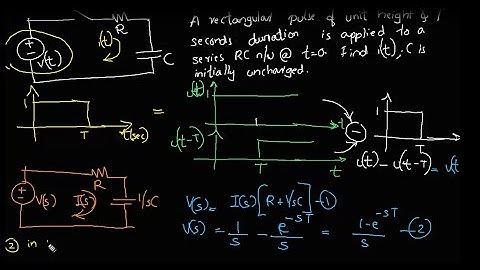 A rectangular pulse of unit height & T
seconds duration is applied to a
series RC n/w @ t=0. Find i(t), C is
initially uncharged.
R
i(t)
C
v(t)
1
T
t(sec)
=
u(t)
1
t
u(t-T)
T
t
-
1
T
u(t) - u(t-T) = v(t
R
V(s)
I(s)
1/sC
V(s) = I(s) [R + 1/sC] - ①
V(s) = 1/s - e^-sT/s = 1-e^-sT/s - ②
② in